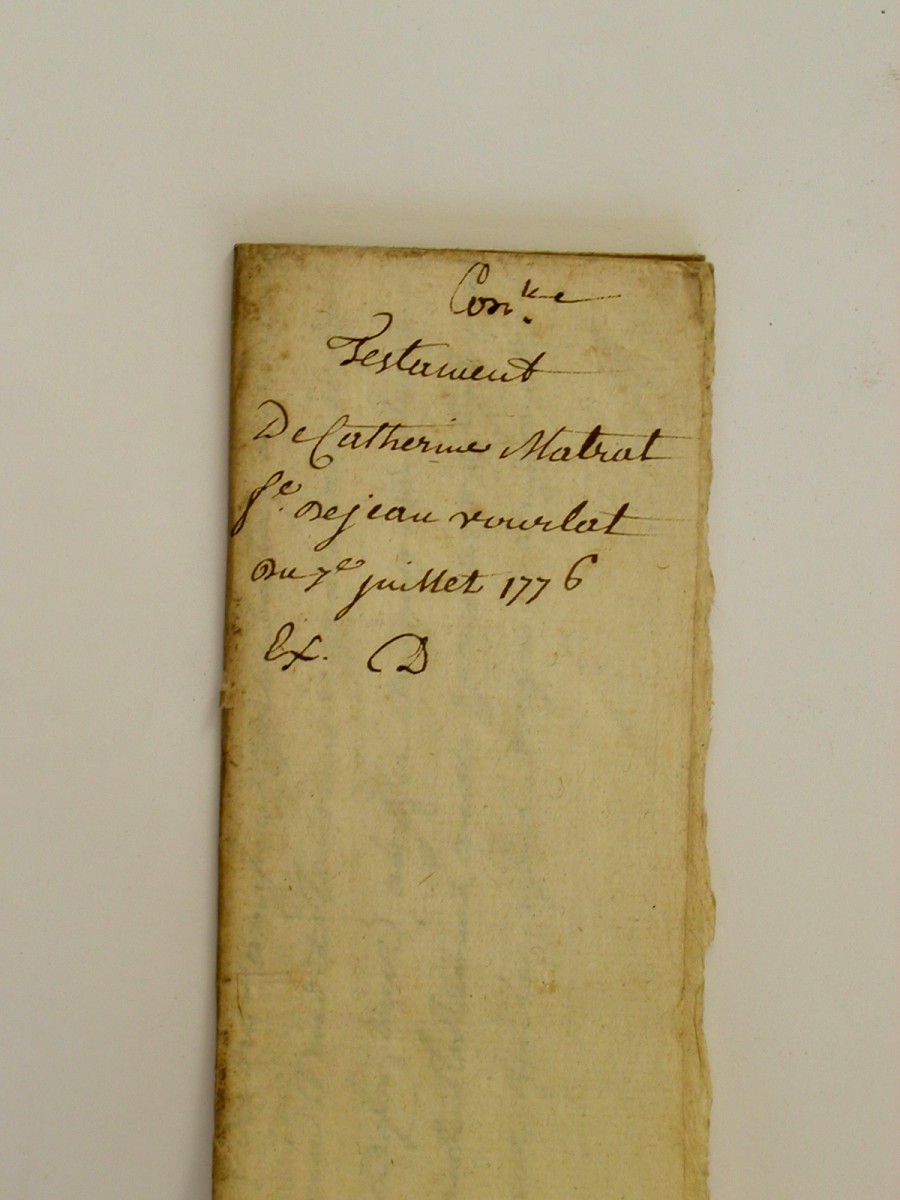 Con.
Testament
De Catherine Matrat
fe. De jean vourlat
Du 7e juillet 1776
Ex. D